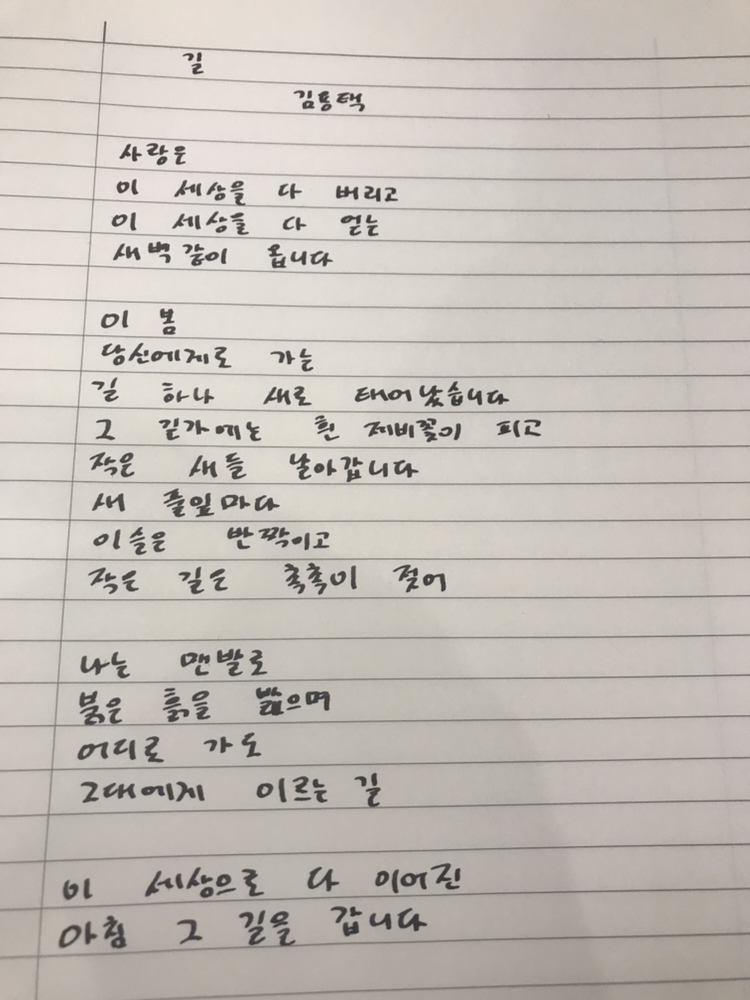 길
김용택
사랑은
이 세상을 다 버리고
이 세상을 다 얻는
새벽같이 옵니다
이 봄
당신에게로 가는
길 하나 새로 태어났습니다
그 길가에는 흰 제비꽃이 피고
작은 새들 날아갑니다
새 풀잎마다
이슬은 반짝이고
작은 길은 촉촉이 젖어
나는 맨발로
붉은 흙을 밟으며
어디로 가도
그대에게 이르는 길
이 세상으로 다 이어진
아침 그 길을 갑니다